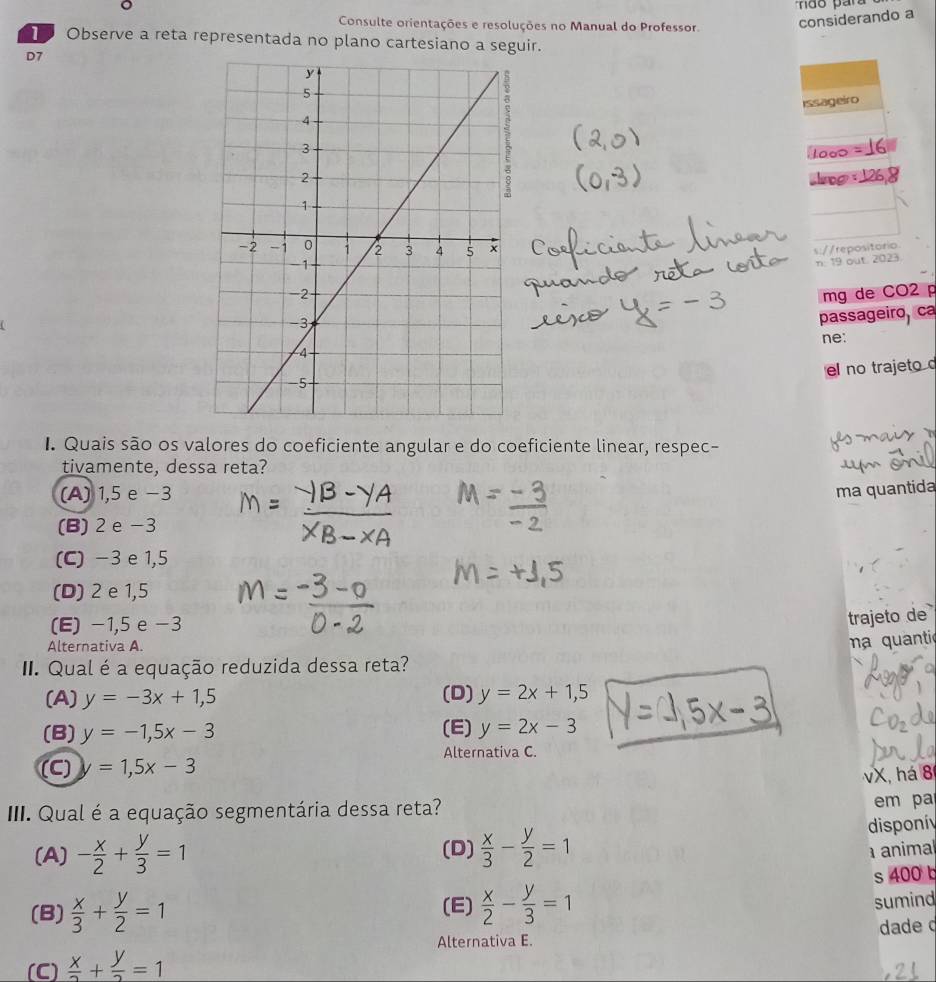 Consulte orientações e resoluções no Manual do Professor.
considerando a
1 Observe a reta representada no plano cartesiano a seguir.
D7
y
5
4
3
2
1
-2 -1 0 1 2 3 4 5 x
-1
-2
-3
-4
-5
Banco de imagens/Arquivo da editora
(2,0)
(0,-3)
Coeficiente linear
quando reta corta
eixo y = -3
ssageiro
1000 = 16
= 126,8
s://repositorio.
n: 19 out. 2023.
mg de CO2 p
passageiro, ca
ne:
el no trajeto d
I. Quais são os valores do coeficiente angular e do coeficiente linear, respec-
tivamente, dessa reta?
(A) 1,5 e −3
(B) 2 e −3
(C) −3 e 1,5
(D) 2 e 1,5
(E) −1,5 e −3
Alternativa A.
M = YB - YA / XB - XA
M = -3 - 0 / 0 - 2
M = -3 / -2
M = +1,5
ma quantida
trajeto de
ma quanti
II. Qual é a equação reduzida dessa reta?
(A) y = −3x + 1,5
(B) y = −1,5x − 3
(C) y = 1,5x − 3
(D) y = 2x + 1,5
(E) y = 2x − 3
Alternativa C.
Y = 1,5x - 3
Logo, a
CO2 de
vX, há 8
em pa
disponív
a animal
s 400 b
sumind
dade d
,21
III. Qual é a equação segmentária dessa reta?
(A) −x/2 + y/3 = 1
(B) x/3 + y/2 = 1
(C) x/ + y/ = 1
(D) x/3 − y/2 = 1
(E) x/2 − y/3 = 1
Alternativa E.